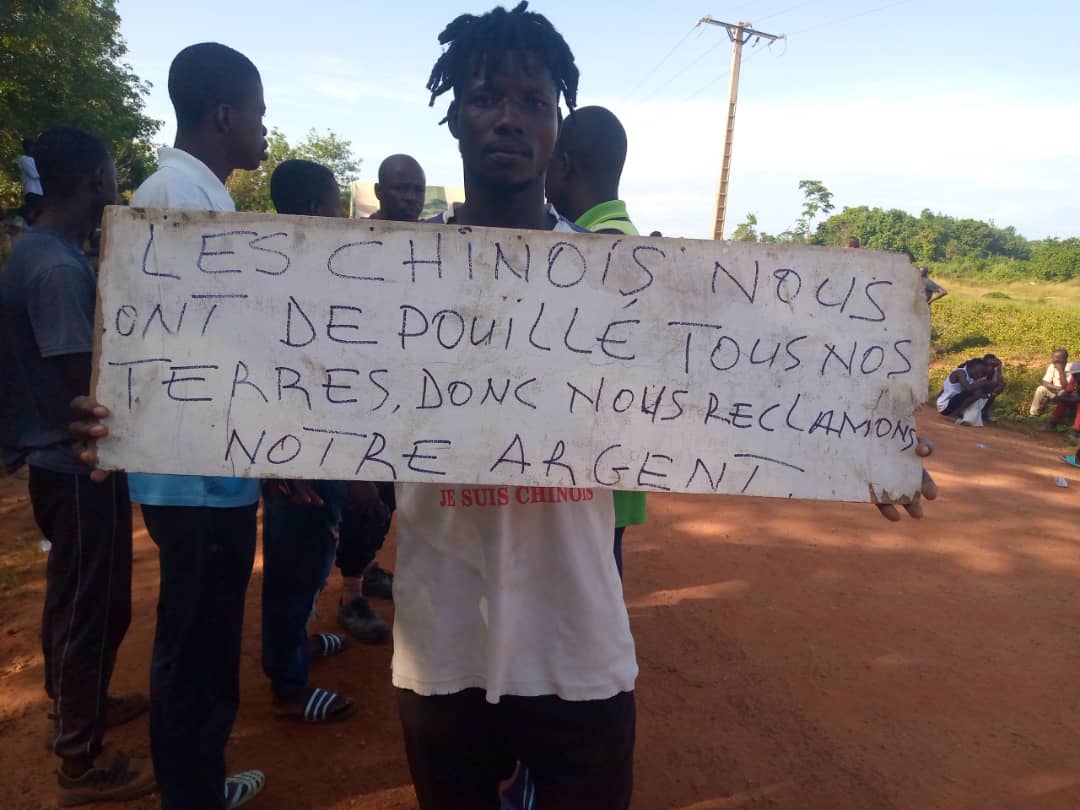 LES CHINOIS NOUS
ONT DE POUÏLLÉ TOUS NOS
TERRES, DONC NOUS RECLAMONS
NOTRE ARGENT.
JE SUIS CHINOIS